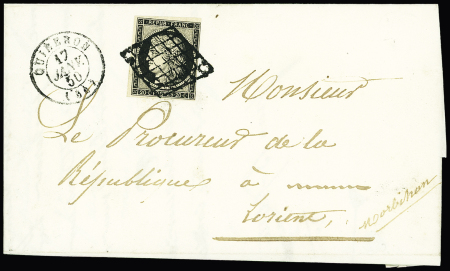 QUIBERON
17
JANV
50
REPUB. FRANC.
Monsieur
Le Procureur de la
République à
Lorient,
Morbihan